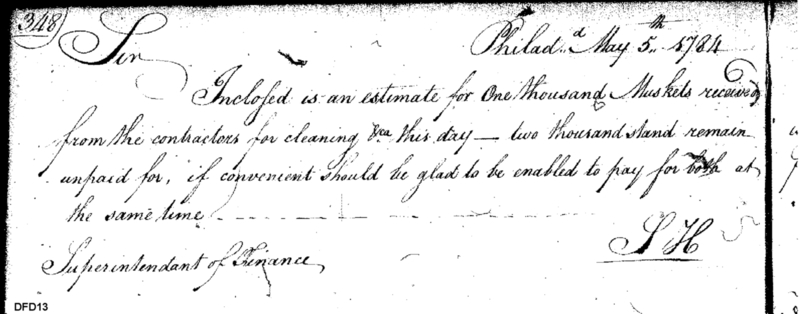 348
Sir
Philad.d May 5th 1784
Inclosed is an estimate for One thousand Muskets received
from the contractors for cleaning &ca this day — two thousand stand remain
unpaid for, if convenient should be glad to be enabled to pay for both at
the same time
S H
Superintendant of Finance
DFD13